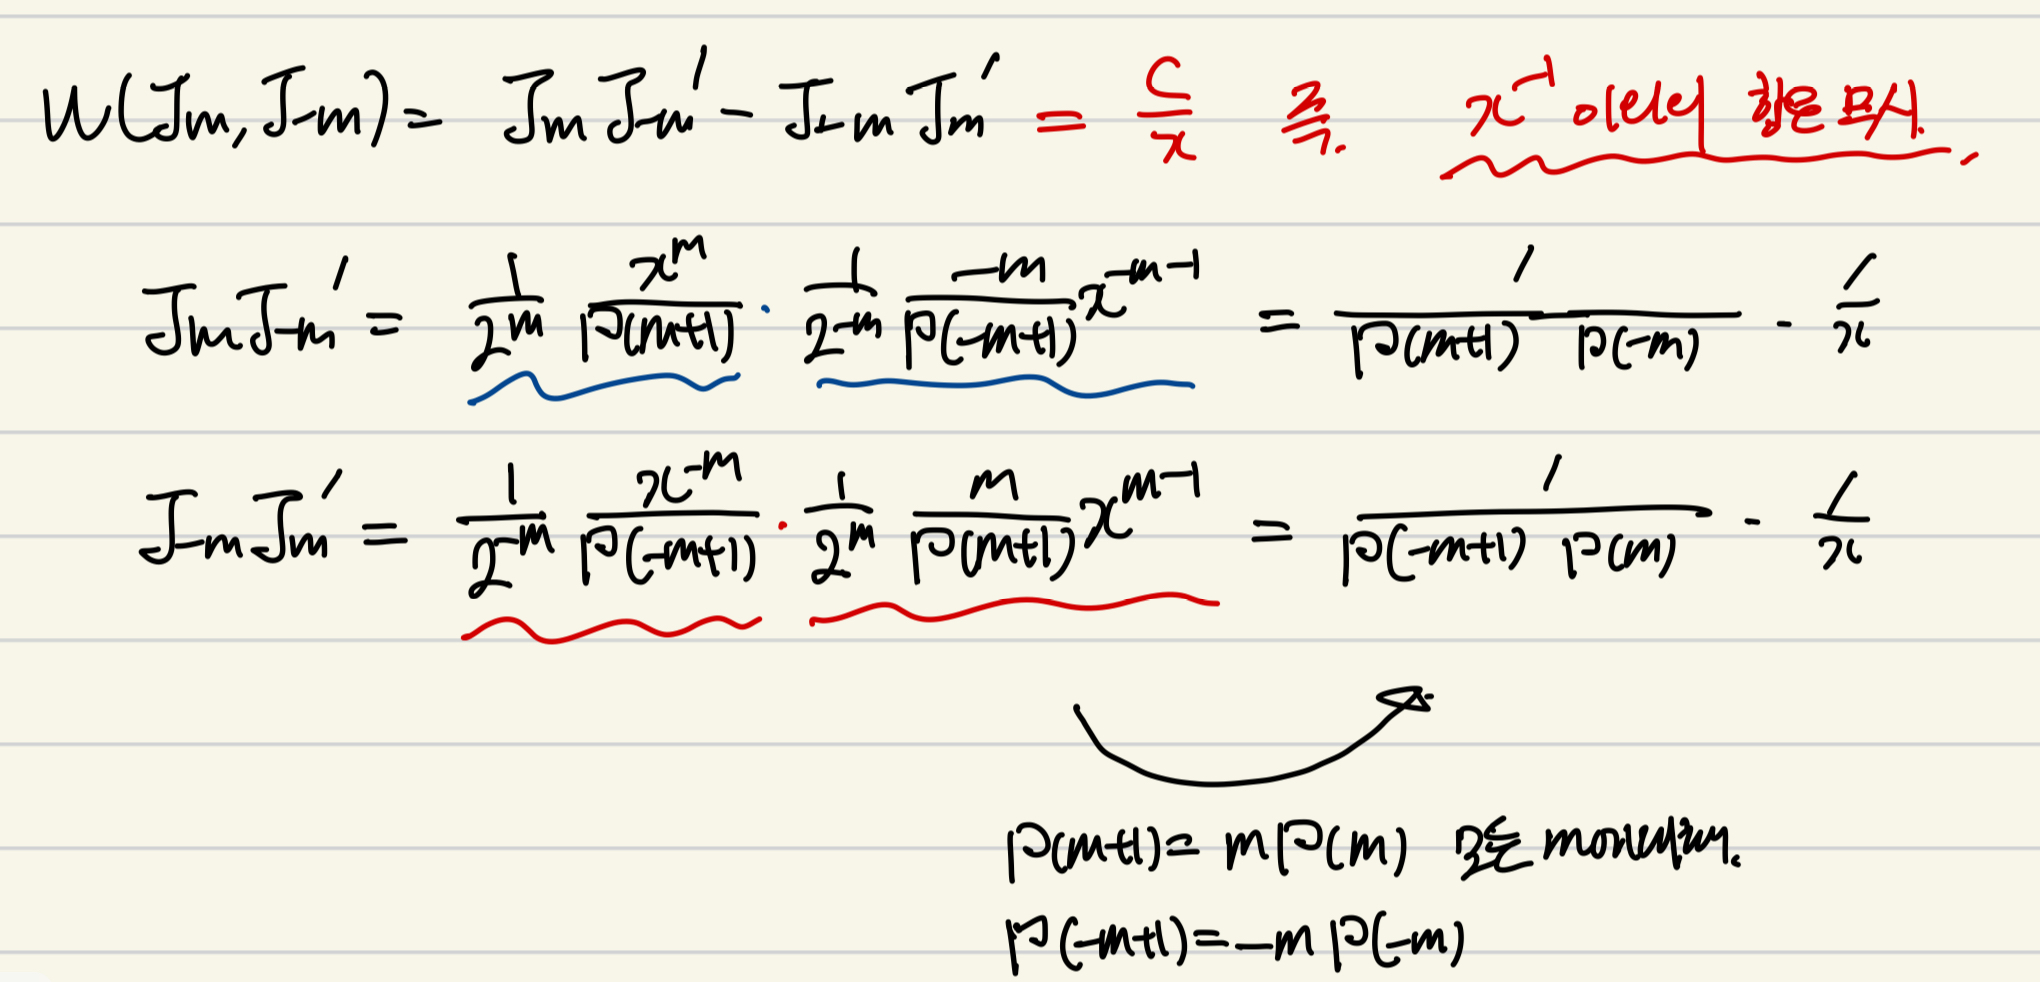 W(Jm, J-m) = Jm J-m' - J-m Jm' = C/x 즉. x^-1 이외의 항은 무시.
Jm J-m' = 1/2^m x^m/Γ(m+1) · 1/2^-m -m/Γ(-m+1) x^-m-1 = 1/Γ(m+1) Γ(-m) · 1/x
J-m Jm' = 1/2^-m x^-m/Γ(-m+1) · 1/2^m m/Γ(m+1) x^m-1 = 1/Γ(-m+1) Γ(m) · 1/x
Γ(m+1) = mΓ(m) 모든
Γ(-m+1) = -mΓ(-m)